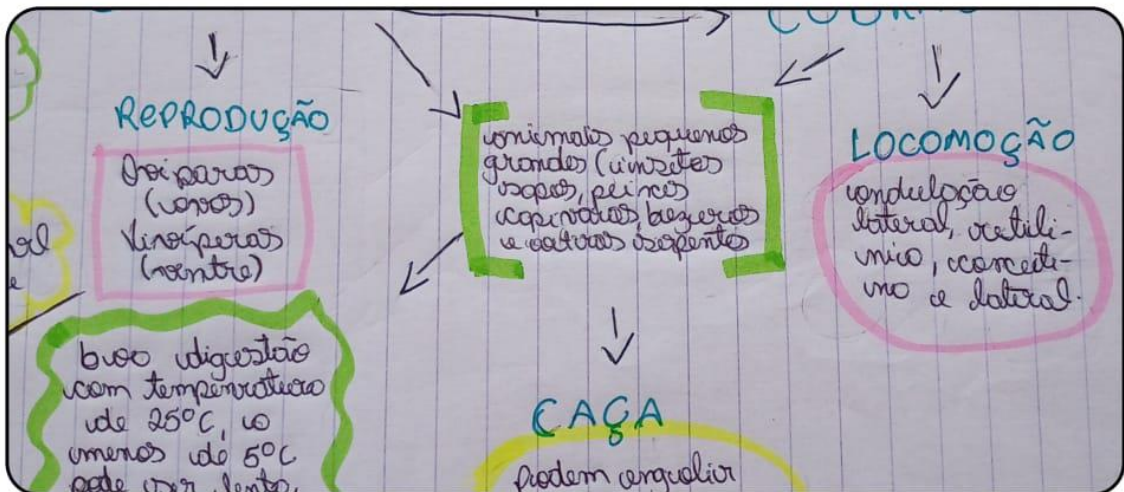 REPRODUÇÃO
Oviparas
(ovos)
Viviperas
(ventre)
boa digestão
com tempenratura
de 25°C, a
menos de 5°C
pode ser lenta,
animais pequenos
grandes (insetos
sapos, peixes
capivaras, bezeros
e outras serpentes
CAÇA
podem engolir
LOCOMOÇÃO
ondulação
lateral, retili-
nio, concerti-
no e lateral.